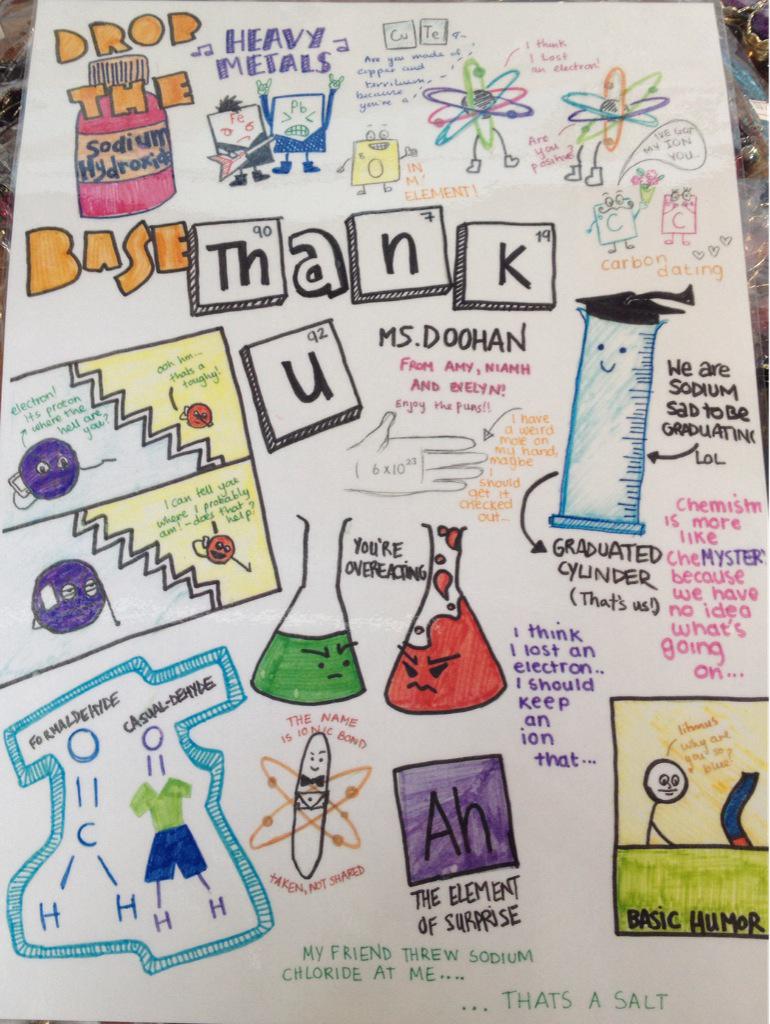 DROP
THE
Sodium
Hydroxide
BASE
HEAVY
METALS
Fe
Pb
Cu Te
Are you made of
copper and
terrilium
because
you're a
8
O
IN
M'
ELEMENT!
I think
I lost
an electron!
Are
you
positive?
I'VE GOT
MY ION
YOU
C
C
carbon
dating
90
Th
a
7
n
19
K
92
U
MS. DOOHAN
FROM AMY, NIAMH
AND EVELYN!
Enjoy the puns!!
6x10²³
I have
a weird
mole on
my hand,
maybe
I
should
get it
checked
out...
We are
SODIUM
SAD TO BE
GRADUATING
LOL
GRADUATED
CYLINDER
(That's us!)
electron!
its proton
where the
hell are
you?
ooh hm...
thats a
toughy!
I can tell you
where I probably
am! - does that
help?
YOU'RE
OVEREACTING
Chemistry
IS more
like
CheMYSTERY
because
we have
no idea
what's
going
on...
I think
I lost an
electron..
I should
keep
an
ion
that...
FORMALDEHYDE
O
C
H H
CASUAL-DEHYDE
O
H H
THE NAME
IS IONIC BOND
TAKEN, NOT SHARED
Ah
THE ELEMENT
OF SURPRISE
litmus
why are
you so
blue?
BASIC HUMOR
MY FRIEND THREW SODIUM
CHLORIDE AT ME....
... THATS A SALT